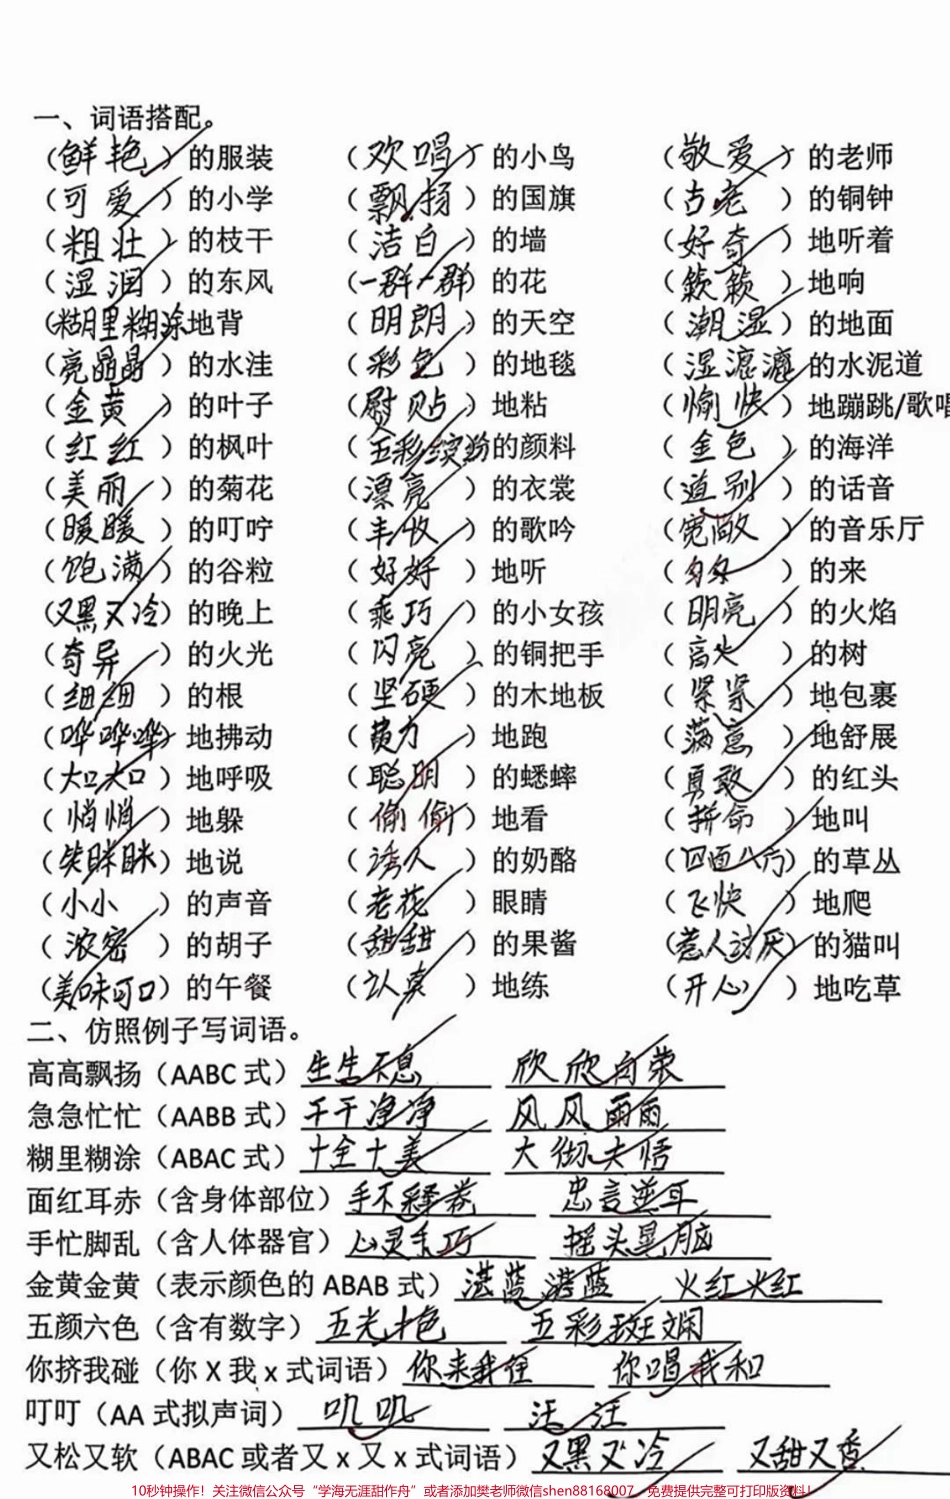 一、词语搭配。
(鲜艳)的服装 (欢唱)的小鸟 (敬爱)的老师
(可爱)的小学 (飘扬)的国旗 (古老)的铜钟
(粗壮)的枝干 (洁白)的墙 (好奇)地听着
(湿润)的东风 (一群一群)的花 (簌簌)地响
(糊里糊涂地背 (明朗)的天空 (潮湿)的地面
(亮晶晶)的水洼 (彩色)的地毯 (湿漉漉)的水泥道
(金黄)的叶子 (熨贴)地粘 (愉快)地蹦跳/歌唱
(红红)的枫叶 (五彩缤纷的颜料 (金色)的海洋
(美丽)的菊花 (漂亮)的衣裳 (道别)的话音
(暖暖)的叮咛 (丰收)的歌吟 (宽敞)的音乐厅
(饱满)的谷粒 (好好)地听 (匆匆)的来
(又黑又冷)的晚上 (乖巧)的小女孩 (明亮)的火焰
(奇异)的火光 (闪亮)的铜把手 (高大)的树
(细细)的根 (坚硬)的木地板 (紧紧)地包裹
(哗哗哗)地拂动 (费力)地跑 (满意)地舒展
(大口大口)地呼吸 (聪明)的蟋蟀 (勇敢)的红头
(悄悄)地躲 (偷偷)地看 (拼命)地叫
(笑眯眯)地说 (诱人)的奶酪 (四面八方)的草丛
(小小)的声音 (老花)眼睛 (飞快)地爬
(浓密)的胡子 (甜甜)的果酱 (惹人讨厌)的猫叫
(美味可口)的午餐 (认真)地练 (开心)地吃草
二、仿照例子写词语。
高高飘扬（AABC 式）生生不息 欣欣向荣
急急忙忙（AABB 式）干干净净 风风雨雨
糊里糊涂（ABAC 式）十全十美 大彻大悟
面红耳赤（含身体部位）手不释卷 忠言逆耳
手忙脚乱（含人体器官）心灵手巧 摇头晃脑
金黄金黄（表示颜色的 ABAB 式）湛蓝湛蓝 火红火红
五颜六色（含有数字）五光十色 五彩斑斓
你挤我碰（你 X 我 x 式词语）你来我往 你唱我和
叮叮（AA 式拟声词）叽叽 汪汪
又松又软（ABAC 或者又 x 又 x 式词语）又黑又冷 又甜又香
10秒钟操作！关注微信公众号“学海无涯甜作舟”或者添加樊老师微信shen88168007，免费提供完整可打印版资料！